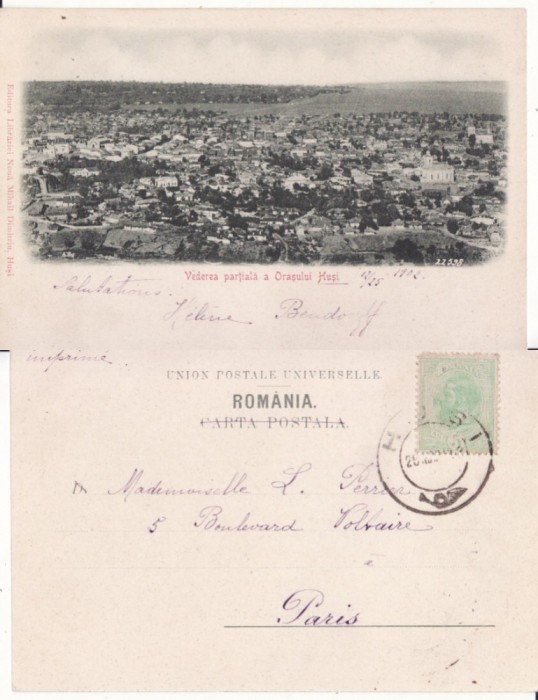 Editura Librăriei Nouă Mihail Dimitriu, Huşi
22598
Vederea parţială a Oraşului Huşi.
1902.
Salutations.
Hélène Bendorff
imprimé
UNION POSTALE UNIVERSELLE.
ROMÂNIA.
CARTA POSTALA
HUSI
Mademoiselle L. Perrier
5 Boulevard Voltaire
à
Paris